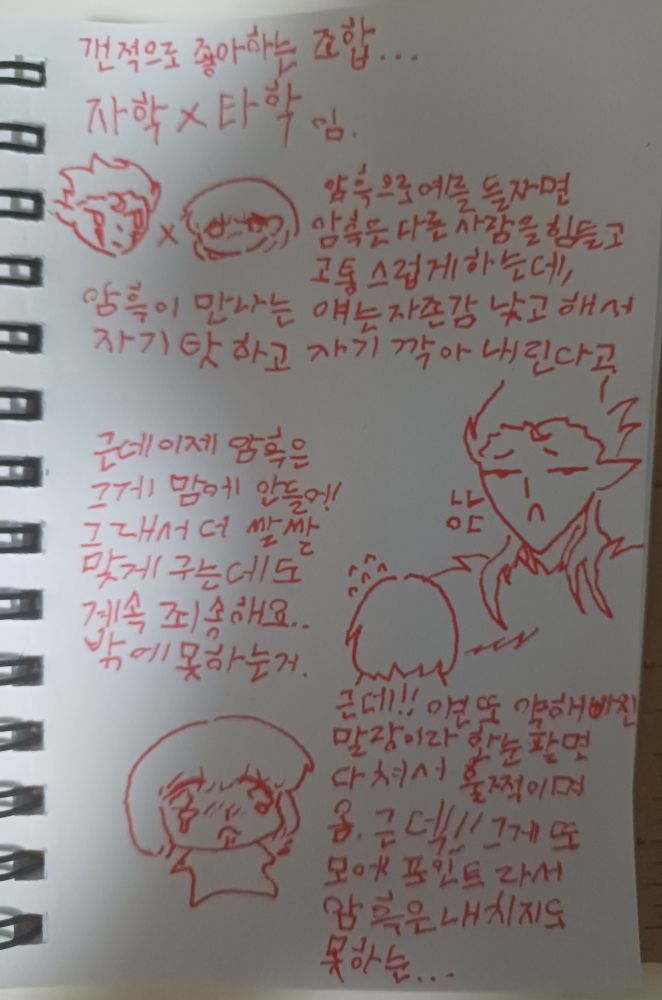 갠적으로 좋아하는 조합...
자학 x 타학 임.
x
암흑으로 예를 들자면
암흑은 다른 사람을 힘들고
고통스럽게 하는데,
암흑이 만나는 얘는 자존감 낮고 해서
자기 탓하고 자기 깍아 내린다고
근데 이제 암흑은
그게 맘에 안들어!
그래서 더 쌀쌀
맞게 구는데도
계속 죄송해요..
밖에 못하는거.
근데!! 이년 또 약해빠진
말랑이라 한눈팔면
다쳐서 훌쩍이며
옴. 근덱!! 그게 또
모에 포인트라서
암흑은 내치지도
못하는...